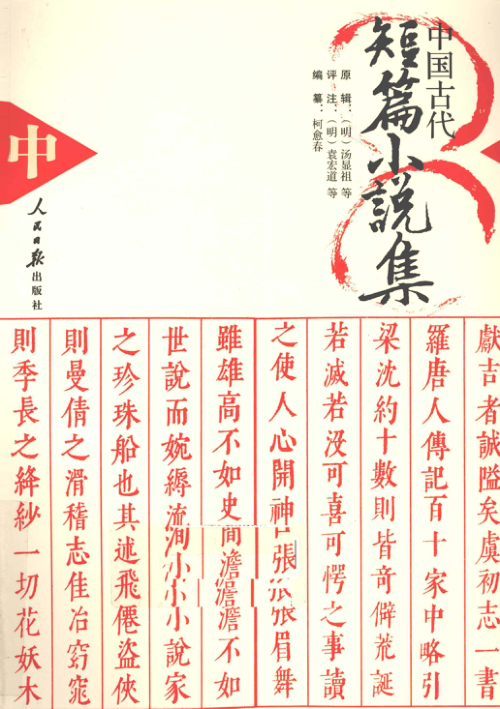 中国古代
短篇小說集
原辑：（明）汤显祖 等
评注：（明）袁宏道 等
编纂：柯愈春
中
人民日报出版社
獻吉者誠隘矣虞初志一書
羅唐人傳記百十家中略引
梁沈約十數則皆奇僻荒誕
若滅若沒可喜可愕之事讀
之使人心開神張張張眉舞
雖雄高不如史間澹澹澹不如
世說而婉縟流洵小小小說家
之珍珠船也其述飛僊盜俠
則曼倩之滑稽志佳冶窈窕
則季長之絳紗一切花妖木